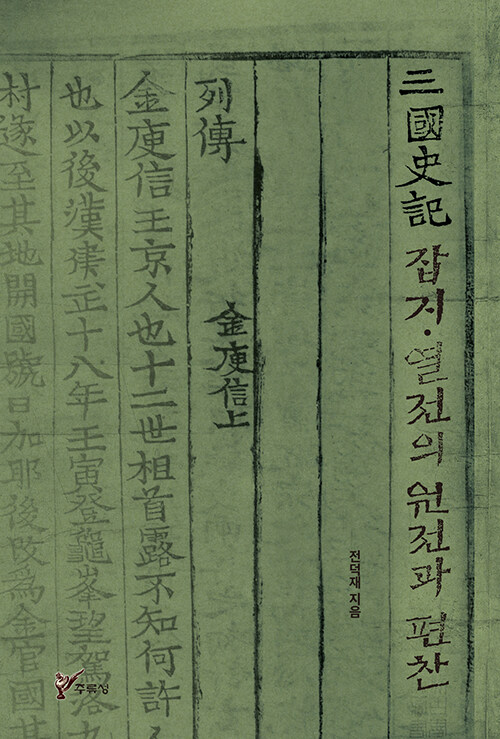 三國史記 잡지·열전의 원전과 편찬
전덕재 지음
列傳
金庾信上
金庾信王京人也十二世祖首露不知何許
也以後漢建武十八年壬寅登龜峯望駕洛九
村遂至其地開國號曰加耶後改爲金官國其
주류성